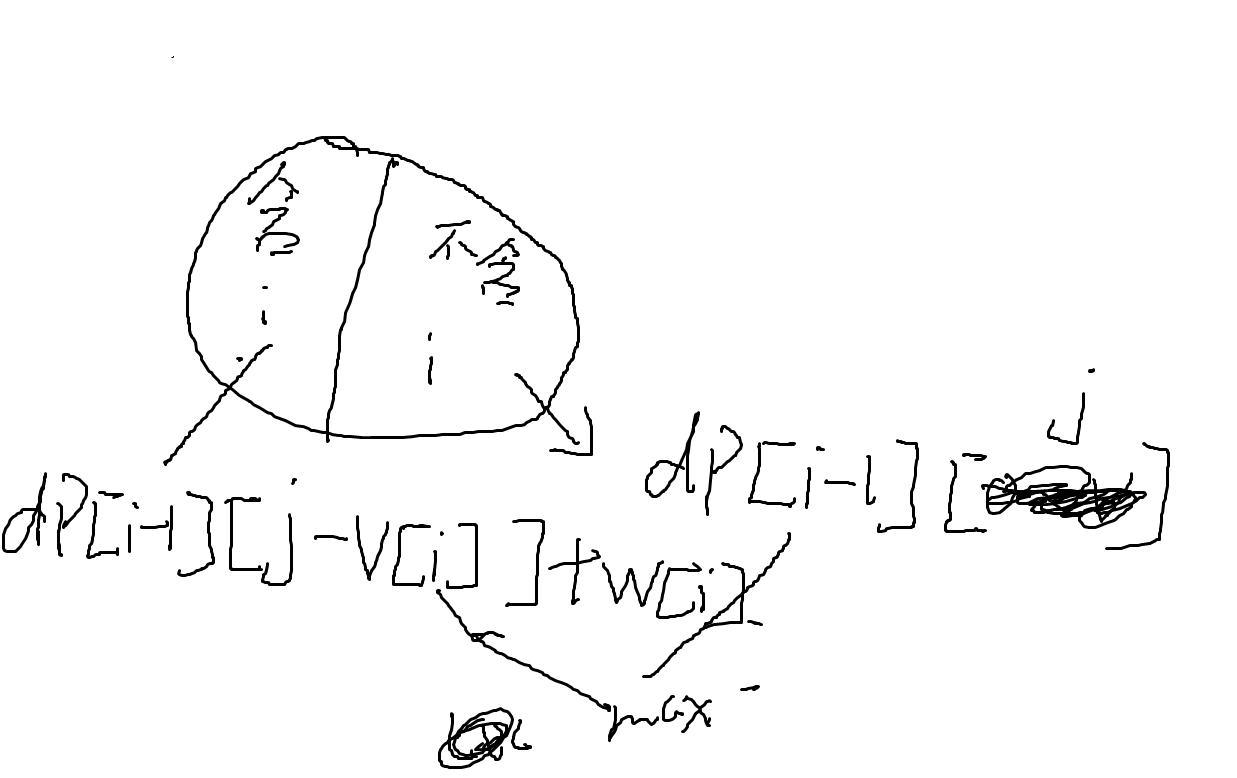 含 不含
i i
j
dp[i-1][j-v[i]]+w[i] dp[i-1][ ]
max